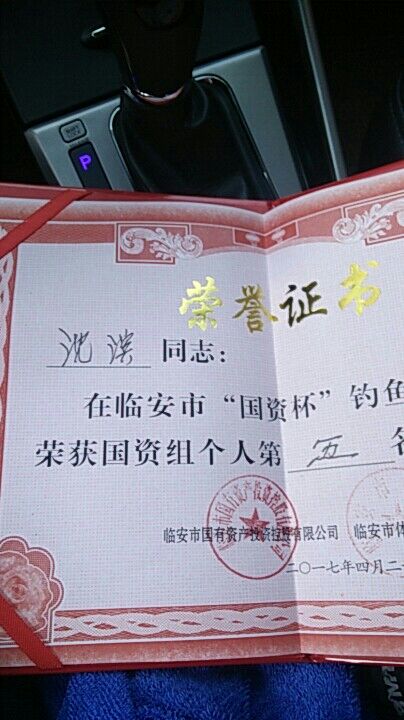 P
荣誉证书
沈滨 同志：
在临安市“国资杯”钓鱼
荣获国资组个人第 五 名
临安市国有资产投资控股有限公司 临安市体
二〇一七年四月二十